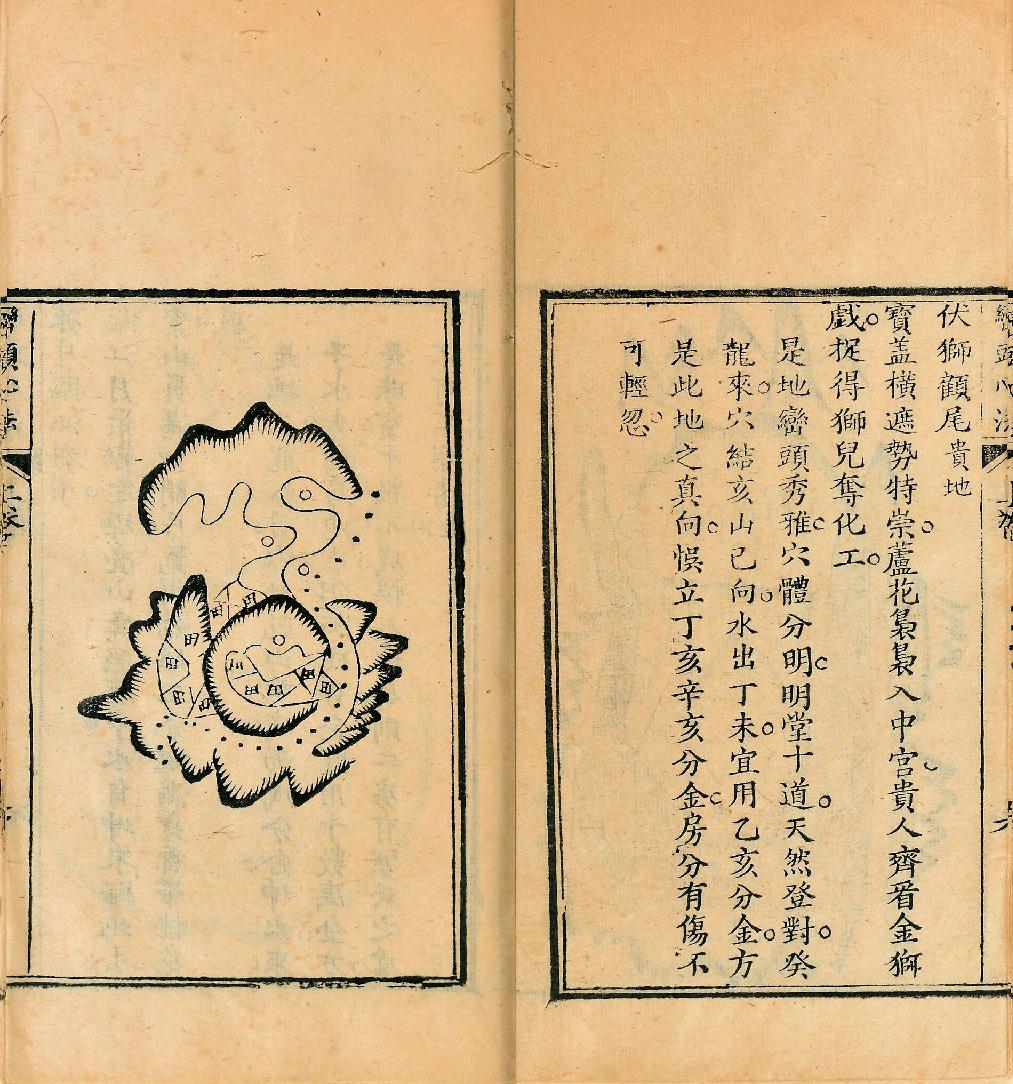 伏獅顧尾貴地
寶盖橫遮勢特崇蘆花裊裊入中宮貴人齊看金獅
戲捉得獅兒奪化工
是地巒頭秀雅穴體分明明堂十道天然登對癸
龍來穴結亥山巳向水出丁未宜用乙亥分金方
是此地之真向悞立丁亥辛亥分金房分有傷不
可輕忽
巒頭心法
上卷
田
田
田
田
田
田
田
田
田
田